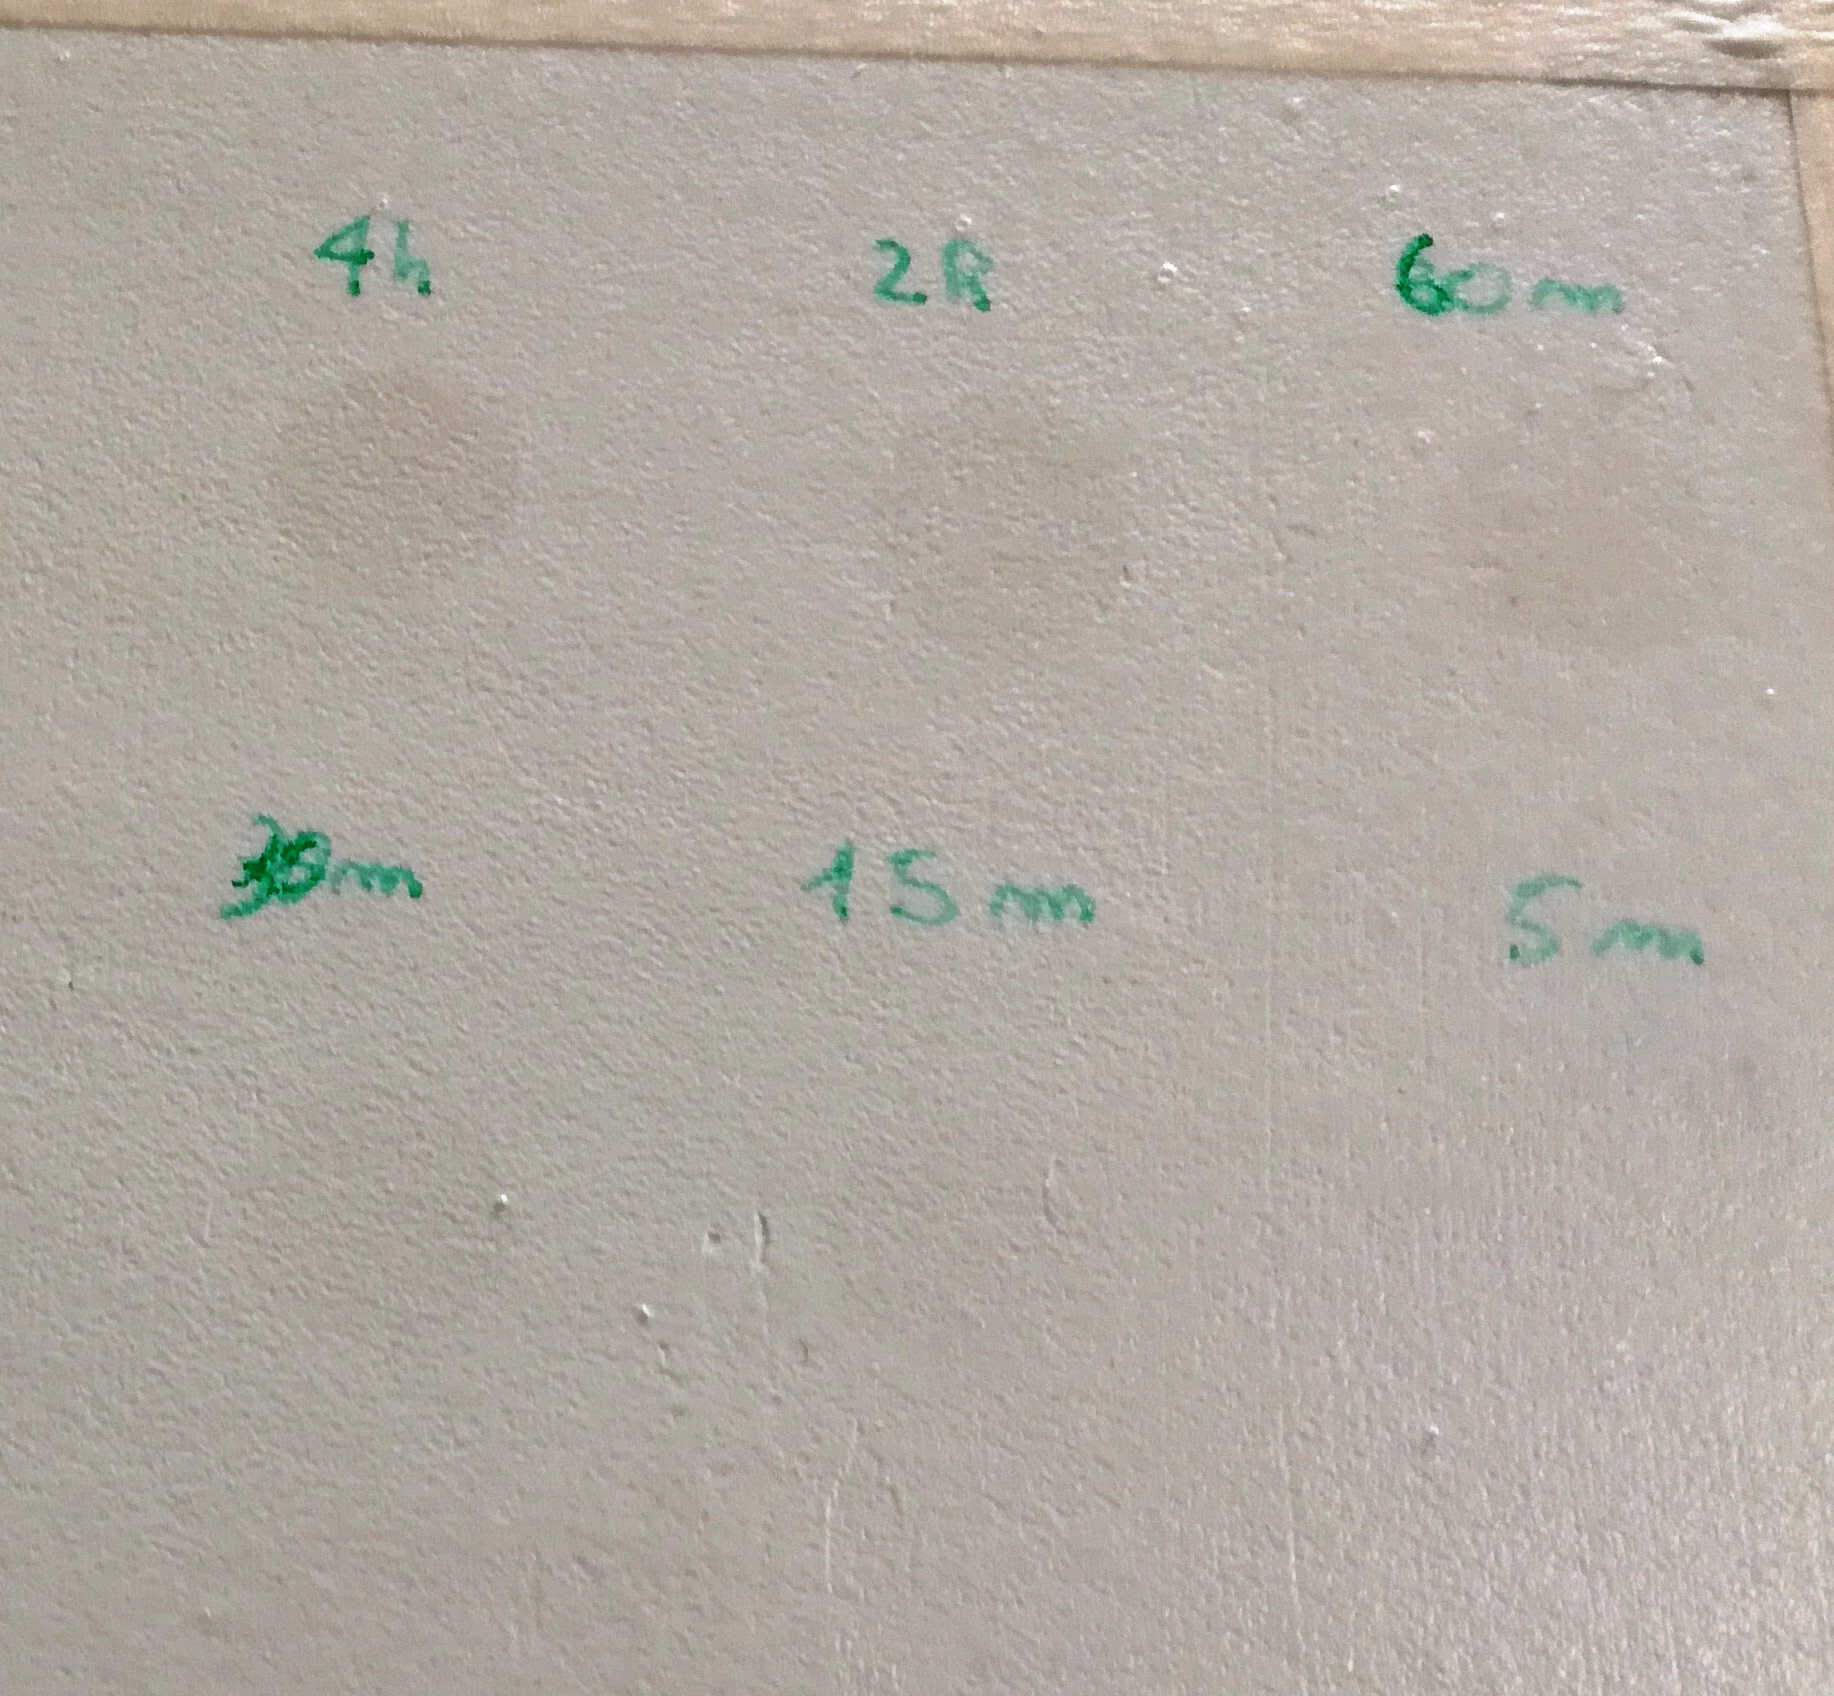 4h 2h 60m
30m 15m 5m